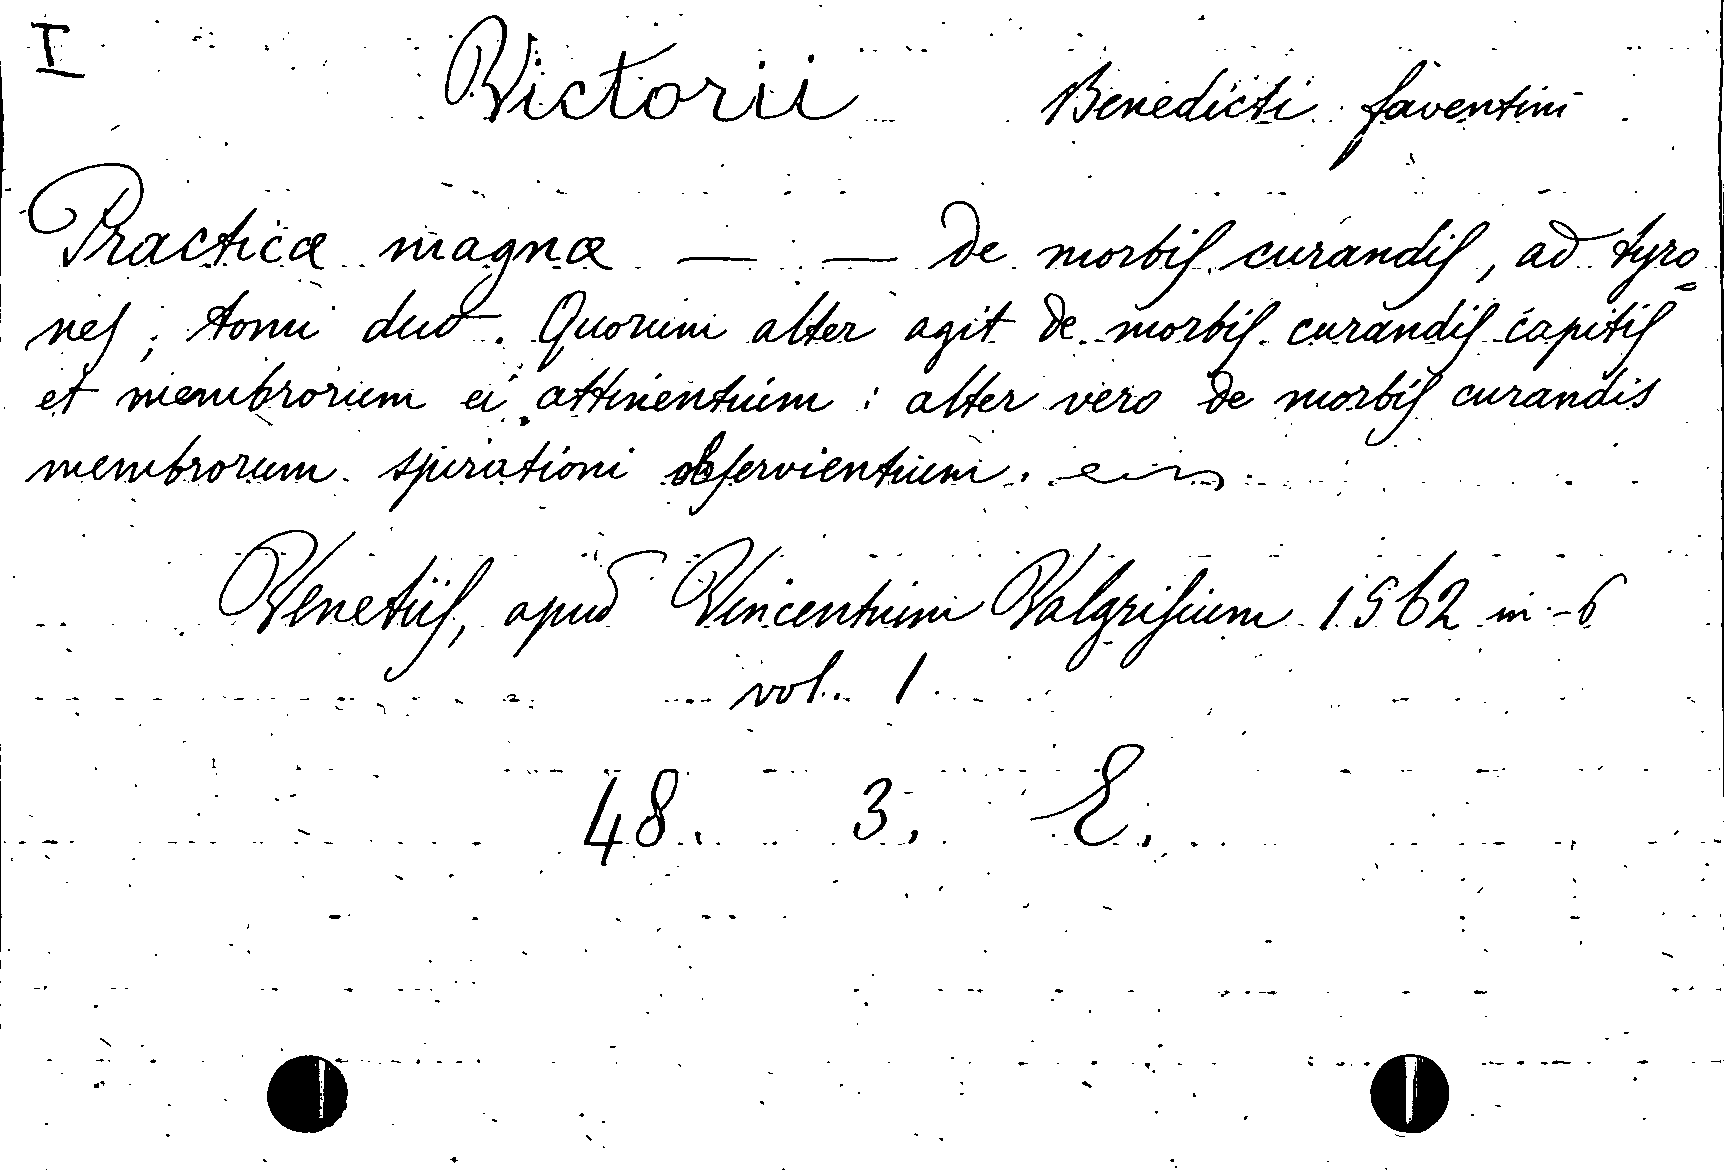 I
Victorii Benedicti faventini
Practicæ magnæ — — de morbis curandis, ad tyro=
nes; tomi duo. Quorum alter agit de morbis curandis capitis
et membrorum ei attinentium: alter vero de morbis curandis
membrorum spirationi observientium.
Venetiis, apud Vincentium Valgrisium 1562 in-6
vol. 1
48. 3. E.